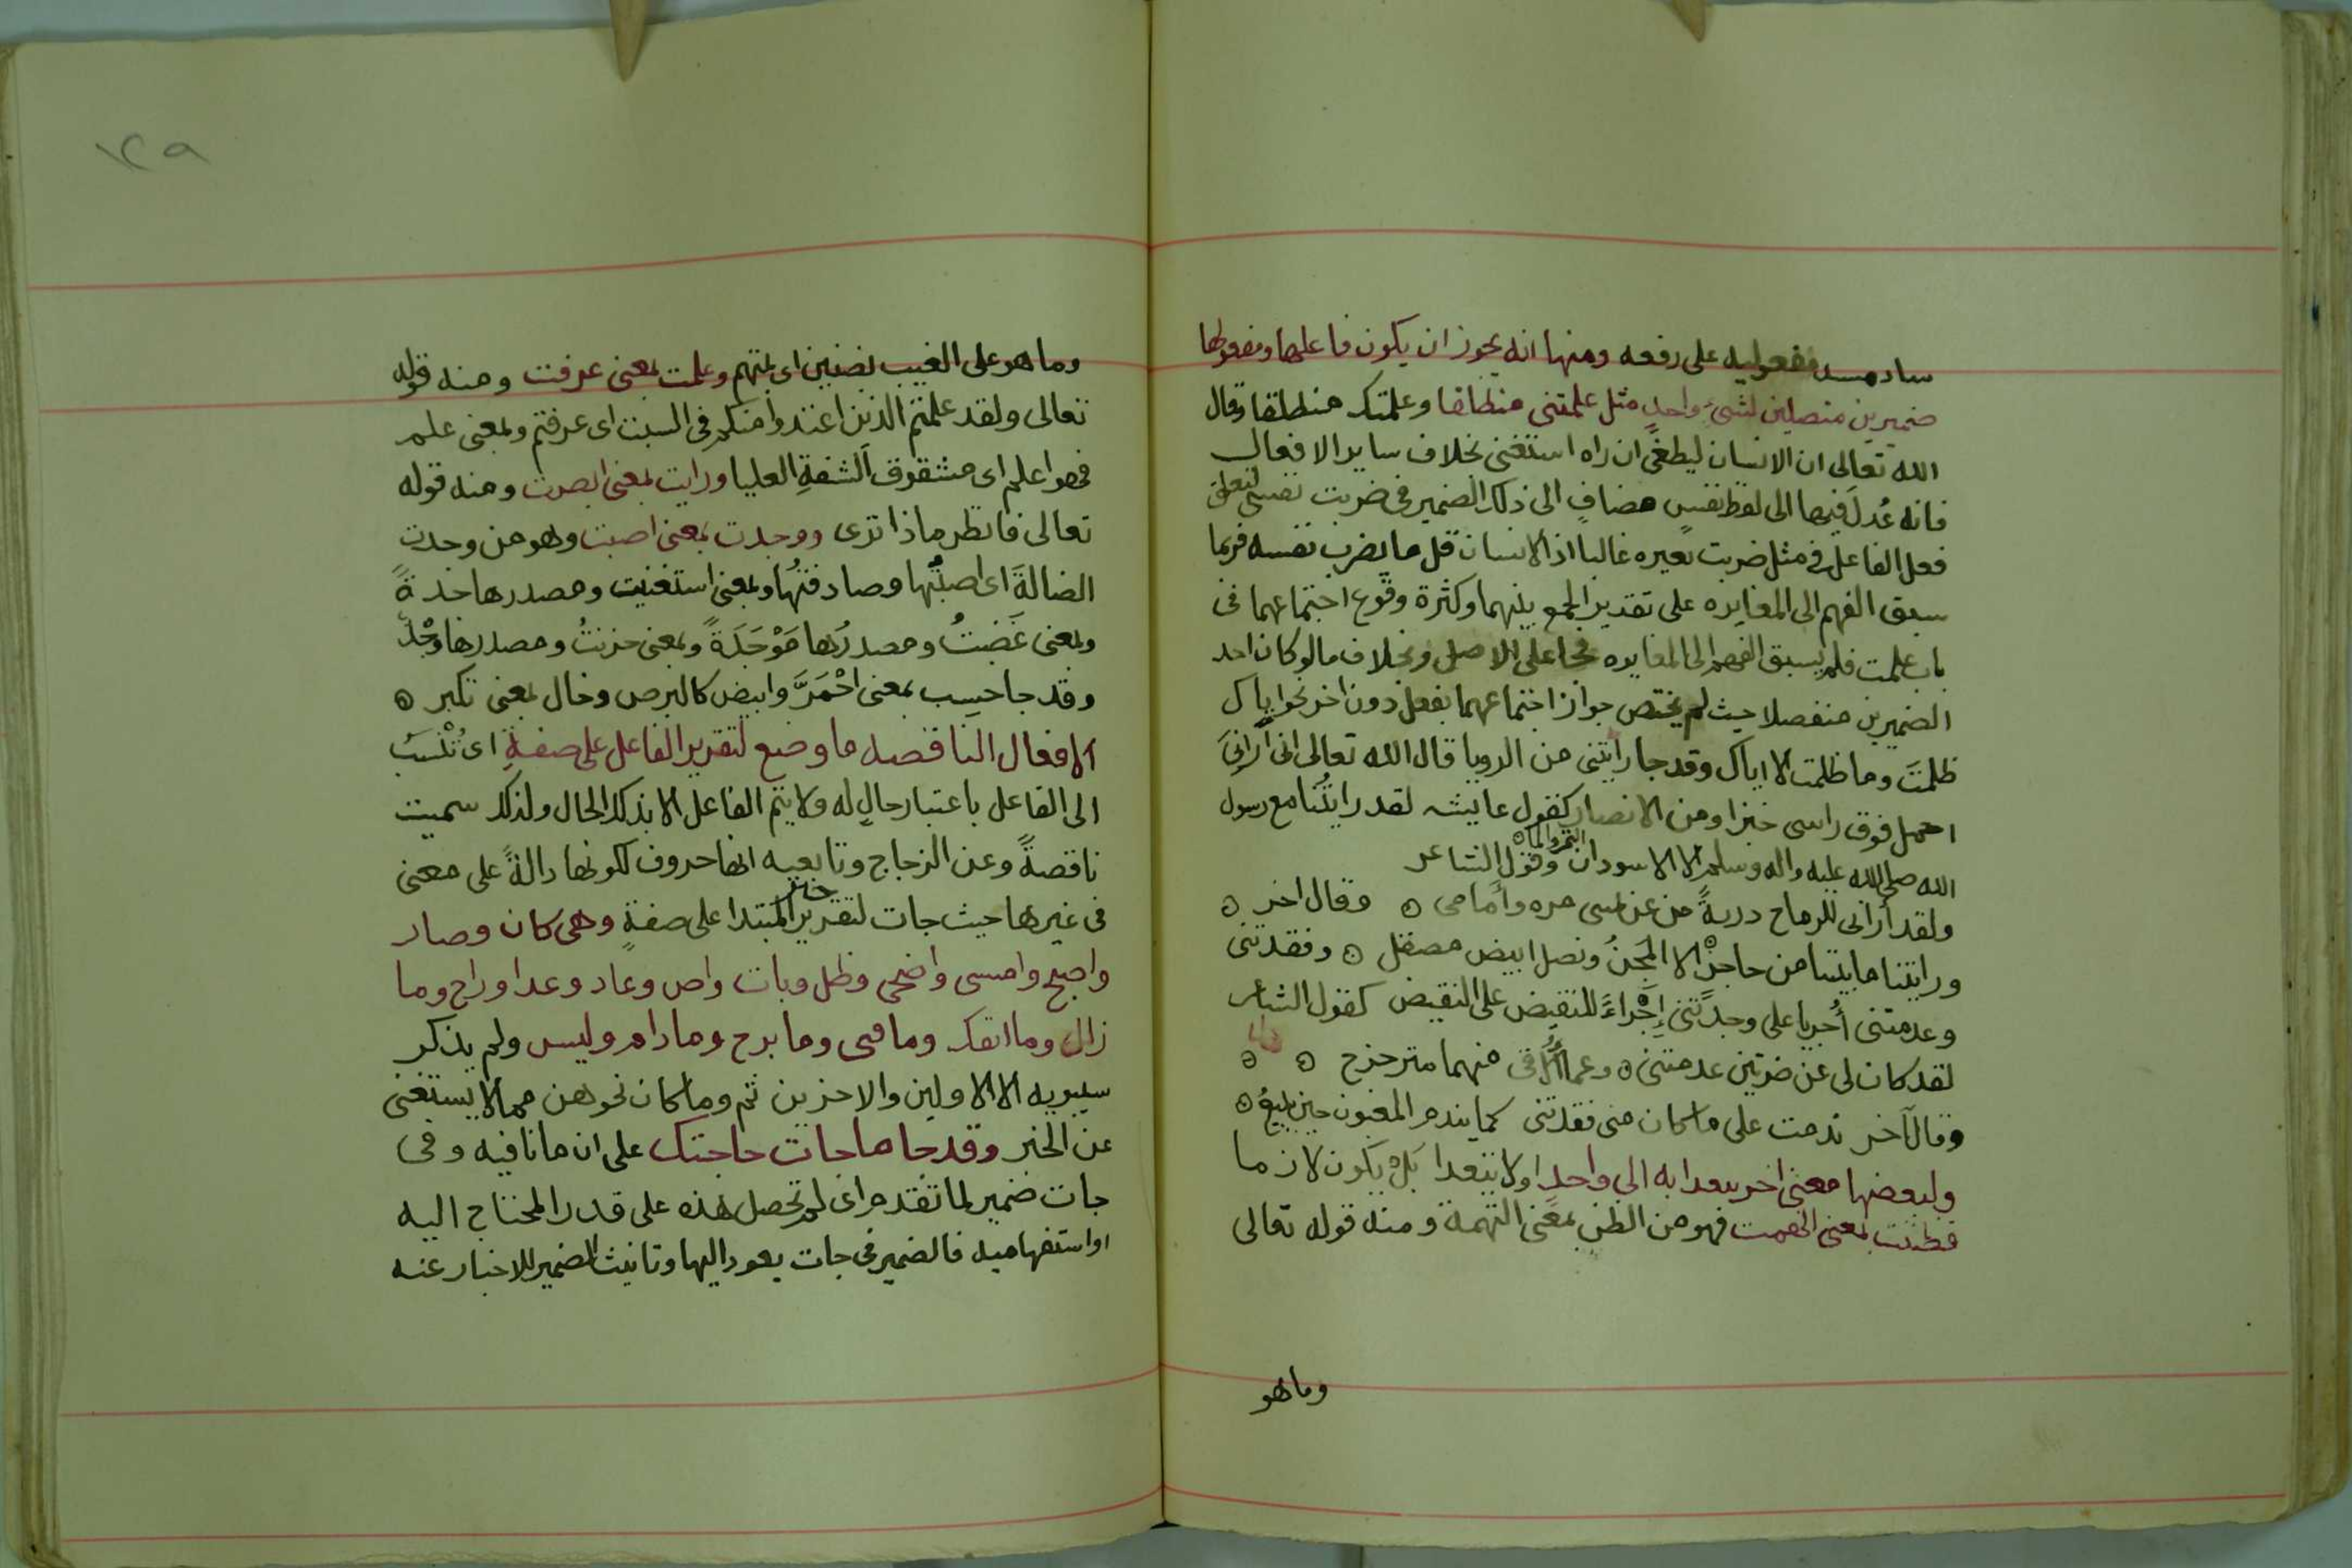 ساد مسد مفعوليه على رفعه ومنها انه يجوز ان يكون فاعلها ومفعولها
ضميرين متصلين لشئ واحدٍ مثل علمتنى منطلقا وعلمتك منطلقا وقال
الله تعالى ان الانسان ليطغى ان راه استغنى بخلاف ساير الافعال
فانه عُدلَ فيها الى لفظ نفسٍ مضافٍ الى ذلك الضمير فى ضربت نفسى لتعلق
فعل الفاعل فى مثل ضربت بغيره غالبا اذ الانسان قل ما يضرب نفسه فربما
سبق الفهم الى المغايره على تقدير الجمع بينهما وكثرة وقوع اجتماعهما فى
باب علمت فلم يسبق الفهم الى المغايره فجا على الاصل وبخلاف مالو كان احد
الضميرين منفصلا حيث لم يختص جواز اجتماعهما بفعل دون اخر نحو اياك
ظلمتَ وما ظلمت الا اياك وقد جا رايتنى من الرويا قال الله تعالى انى ارانىَ
احمل فوق راسى خبزا ومن الابصار كقول عايشه لقد رايتُنا مع رسول
الله صلى الله عليه واله وسلم الا الاسودان التمر والماه وقول الشاعر
ولقد أرانى للرماح دريةً من عن يمينى مره وأمامى ۞ وقال اخر ۞
ورايتنا ما بيننا من حاجزٍ الا المجَنُ ونصل ابيض مصقل ۞ وفقدتنى
وعدمتنى أُجريا على وجدتنى إجراءً للنقيض على النقيض كقول الشاعر
لقد كان لى عن ضرتين عدمتنى ۞ وعما أُلاقى منهما متزحزح ۞ ۞
وقال آخر ندمت على ما كان منى فقدتنى كما يندم المغبون حين يبيعُ ۞
ولبعضها معنى اخر يتعدا به الى واحدٍ او لا يتعدا بل يكون لازما
فظننت بمعنى اتهمت فهو من الظن بمعنى التهمة ومنه قوله تعالى
وما هو
١٢٩
وما هو على الغيب بضنين اى بمتهم وعلمت بمعنى عرفت ومنه قوله
تعالى ولقد علمتم الذين اعتدوا منكم فى السبت اى عرفتم وبمعنى علم
فهو اعلم اى مشقوق الشفةِ العليا ورايت بمعنى ابصرت ومنه قوله
تعالى فانظر ماذا ترى ووجدت بمعنى اصبت وهو من وجدت
الضالةَ اى اصبتُها وصادفتُها وبمعنى استغنيت ومصدرها جدةً
وبمعنى غَضبتُ ومصدرُها مَوْجَدَةً وبمعنى حزنتُ ومصدرها وجْدً
وقد جا حسِب بمعنى احْمَرَّ وابيض كالبرص وخال بمعنى تكبر ۞
الافعال الناقصه ما وضع لتقرير الفاعل على صفةٍ اى تُنْسَبُ
الى الفاعل باعتبار حالٍ له ولا يتم الفاعل الا بذلك الحال ولذلك سميت
ناقصةً وعن الزجاج وتابعيه انها حروف لكونها دالةً على معنى
فى غيرها حيث جات لتقرير خبر المبتدا على صفةٍ وهى كان وصار
واصبح وامسى واضحى وظل وبات واض وعاد وغدا وراح وما
زال وما انفك وما فتى وما برح وما دام وليس ولم يذكر
سيبويه الا الاولين والاخرين ثم وما كان نحوهن مما لا يستغنى
عن الخبر وقد جا ما جات حاجتك على ان ما نافيه وفى
جات ضمير لما تقدم اى لم تحصل هذه على قدر المحتاج اليه
او استفهاميه فالضمير فى جات يعود اليها وتانيث الضمير للاخبار عنه